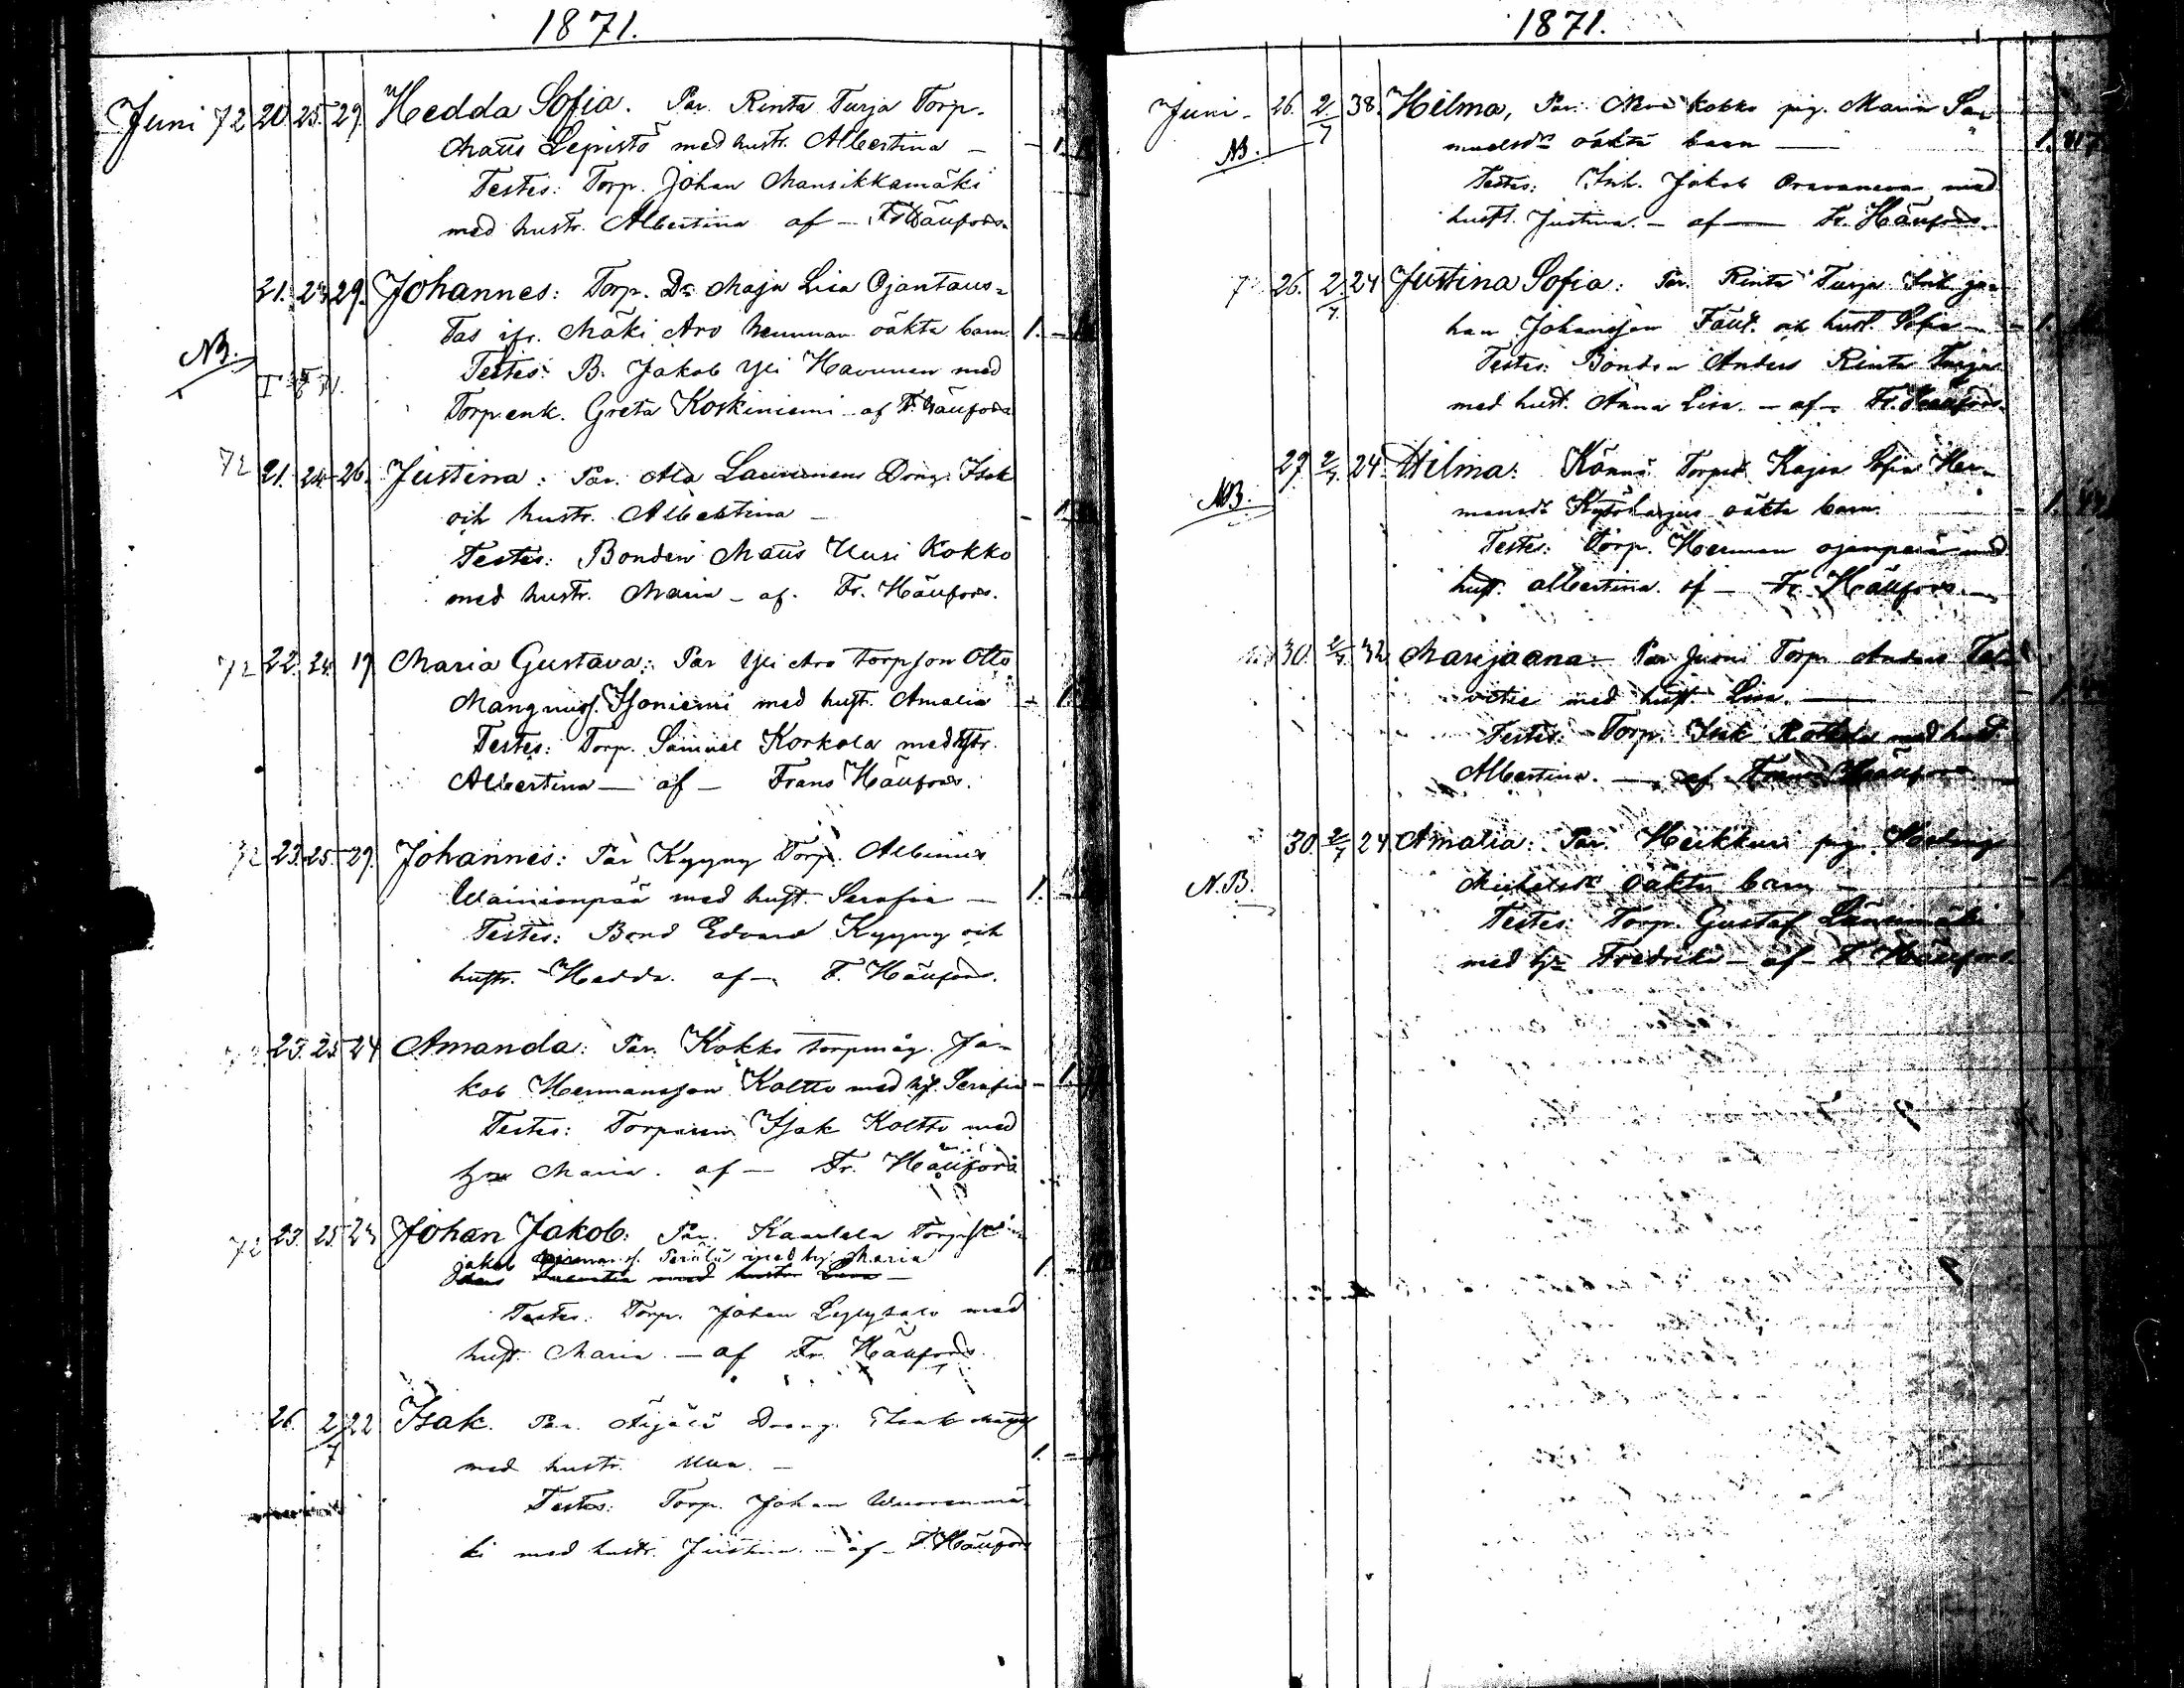 1871.
Juni 72 20. 25. 29. Hedda Sofia. Par. Rinta Turja Torp.
Matts Lepistö med hustr. Albertina — 1.
Testes: Torp. Johan Mansikkamäki
med hustr. Albertina af — Fr Häufors.
21. 23 29. Johannes: Torp. Dr Maja Lisa Ojantaus-
tas ifr. Mäki Aro Hemman oäkta barn. 1. —
NB.
Testes: B. Jakob Yli Havunen med
Torp.enk. Greta Koskiniemi af F. Häufors
72 21. 24. 26. Justina: Par. Ala Dreng. Isak
och hustr. Albertina — 1.
Testes: Bonden Matts Uusi Kokko
med hustr. Maria — af. Fr. Häufors.
72 22. 24. 19 Maria Gustava: Par Yli Aro Torpson Otto
Mangnuss. Isoniemi med hust. Amalia — 1.
Testes: Torp. Samuel Korkola med hstr.
Albertina — af — Frans Häufors.
72 23. 25. 29. Johannes: Par Kyyny Torp. Albinus
Wainionpää med hust. Serafia — 1.
Testes: Bond Edvard Kyyny och
hustr. Hedda. af — F. Häufors.
23. 25 24 Amanda: Par. Kokko torpmåg. Ja-
kob Hermansson Koltto med hst. Serafia — 1.
Testes: Torparen Isak Koltto med
hru Maria. af — Fr. Häufors
72 23. 25 23 Johan Jakob: Par. Kaartela
Jakob Perälä med hu Maria 1.
med hustr
Testes. Torp. Johan med
hust. Maria. — af Fr. Häufors.
26. 2/7 22 Isak. Par. Äijälä Dreng.
med hustr. — 1. —
Testes: Torp. Johan Wuorenmä-
ki med hustr. Justina. — af — F. Häufors
1871.
Juni - 26. 2/7 38. Hilma, Par. Kokko pig. Maria Sa-
NB.
muelsdr oäkta barn — 1.
Testes: Inh. Jakob med
hust. Justina. — af — Fr. Häufors.
7 26. 2/7 24 Justina Sofia: Par. Rinta Turja Inh Jo-
han Johansson och hust. Sofia — 1.
Testes: Bonden Anders Rinta Turja
med hust. Anna Lisa. — af — Fr. Häufors.
29 2/7 24. Hilma: Könni Torpd. Kajsa Sofia Her-
NB.
mansdr oäkta barn. — 1.
Testes: Torp. Herman Ojanperä med
hust. Albertina. af — Fr. Häufors —
30. 2/7 32 Marijaana: Par Torp. Anders
med hust. Lisa. — 1.
Testes: Torp. Isak med hust
Albertina. — af Frans Häufors
30. 2/7 24 Amalia: Par. Heikkuri pig. Hedvig
N.B.
Michelsdr oäkta barn — 1.
Testes: Torp. Gustaf Länsimäki
med hr Fredrika — af F Häufors.